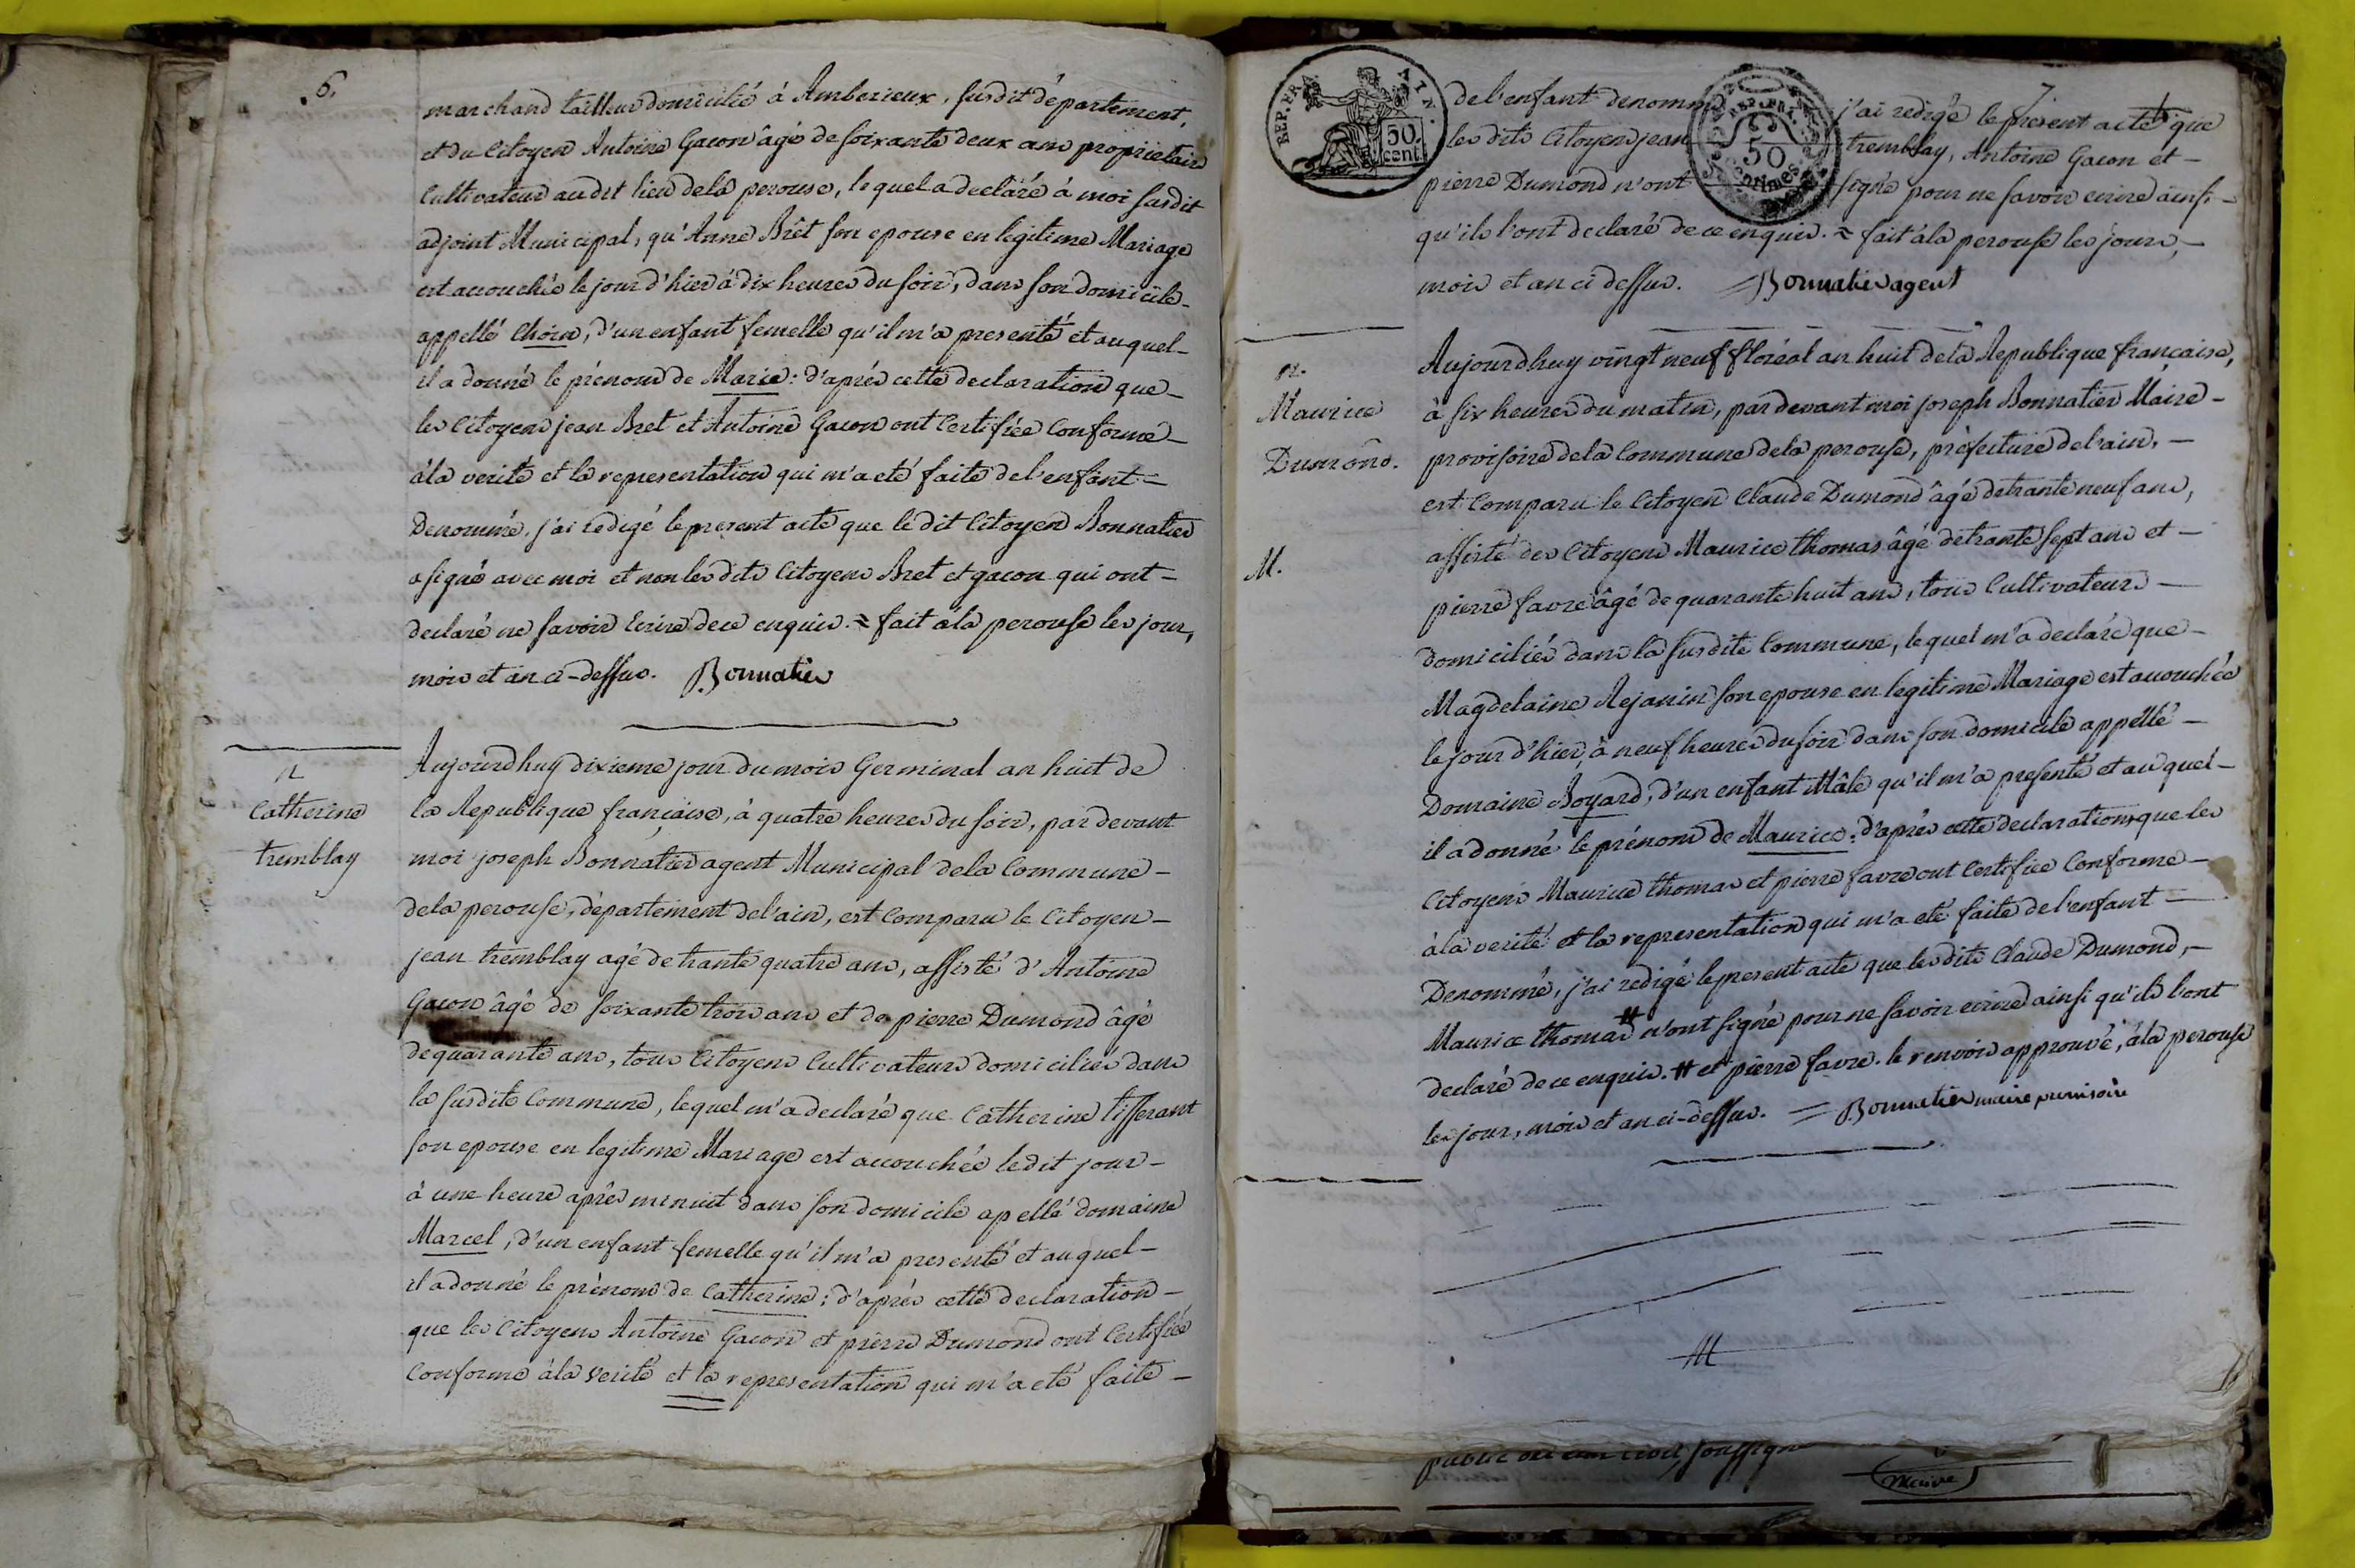 6.
marchand tailleur domicilié à Amberieux, susdit département,
et du Citoyen Antoine Gacon âgé de soixante deux ans propriétaire
Cultivateur au dit lieu dela perouse, lequel a declaré à moi susdit
adjoint Municipal, qu'Anne Brêt son epouse en legitime Mariage
est accouchée le jour d'hier à dix heures du soir, dans son domicile
appellé Choin, d'un enfant femelle qu'il m'a presenté et auquel
il a donné le prénom de Marie: d'après cette declaration que
les Citoyens jean Bret et Antoine Gacon ont Certifiée Conforme
àla verité et la representation qui m'a eté faite del'enfant
Denommé, j'ai redigé le present acte que le dit Citoyen Bonnatier
a signé avec moi et non les dits Citoyens Bret et gacon qui ont
declaré ne savoir Ecrire dece enquis. = fait àla perouse les jour,
mois et an ci-dessus. Bonnatier
n
Catherine
tremblay
Aujourdhuy dixieme jour du mois Germinal an huit de
la Republique française, à quatre heures du soir, par devant
moi joseph Bonnatier agent Municipal dela Commune
dela perouse, département del'ain, est Comparu le Citoyen
jean tremblay agé de trante quatre ans, assisté d'Antoine
Gacon âgé de soixante trois ans et de pierre Dumond âgé
de quarante ans, tous Citoyens Cultivateurs domiciliés dans
la susdite Commune, lequel m'a declaré que Catherine tisserant
son epouse en legitime Mariage est accouchée ledit jour
à une heure après minuit dans son domicile apellé domaine
Marcel, d'un enfant femelle qu'il m'a presenté et auquel
il a donné le prénom de Catherine: d'après cette declaration
que les Citoyens Antoine Gacon et pierre Dumond ont Certifiée
Conforme àla verité et la representation qui m'a eté faite
7
REP. FRA. 50. cent.
REP. FRA. 50 centimes
del'enfant denommé j'ai redigé le present acte que
les dits Citoyens jean tremblay, Antoine Gacon et
pierre Dumond n'ont signé pour ne savoir ecrire ainsi
qu'ils l'ont declaré de ce enquis. = fait àla perouse les jours,
mois et an ci dessus. = Bonnatier agent
n.
Maurice
Dumond.
M.
Aujourdhuy vingt neuf floréal an huit dela Republique française,
à six heures du matin, par devant moi joseph Bonnatier Maire
provisoire dela Commune dela perouse, préfecture del'ain,
est Comparu le Citoyen Claude Dumond âgé de trante neuf ans,
assisté des Citoyens Maurice thomas âgé de trante sept ans et
pierre favre âgé de quarante huit ans, tous Cultivateurs
domiciliés dans la susdite Commune, lequel m'a declaré que
Magdelaine Rejanin son epouse en legitime Mariage est accouchée
le jour d'hier, à neuf heures du soir dans son domicile appellé
Domaine Boyard, d'un enfant Mâle qu'il m'a presenté et auquel
il a donné le prénom de Maurice: d'après cette declaration que les
Citoyens Maurice thomas et pierre favre ont Certifiée Conforme
àla verité et la representation qui m'a eté faite del'enfant
Denommé, j'ai redigé le present acte que les dits Claude Dumond,
Maurice thomas # n'ont signé pour ne savoir ecrire ainsi qu'ils l'ont
declaré de ce enquis. # et pierre favre. le renvoi approuvé, àla perouse
les jour, mois et an ci-dessus. = Bonnatier maire provisoire
M
public
Maire